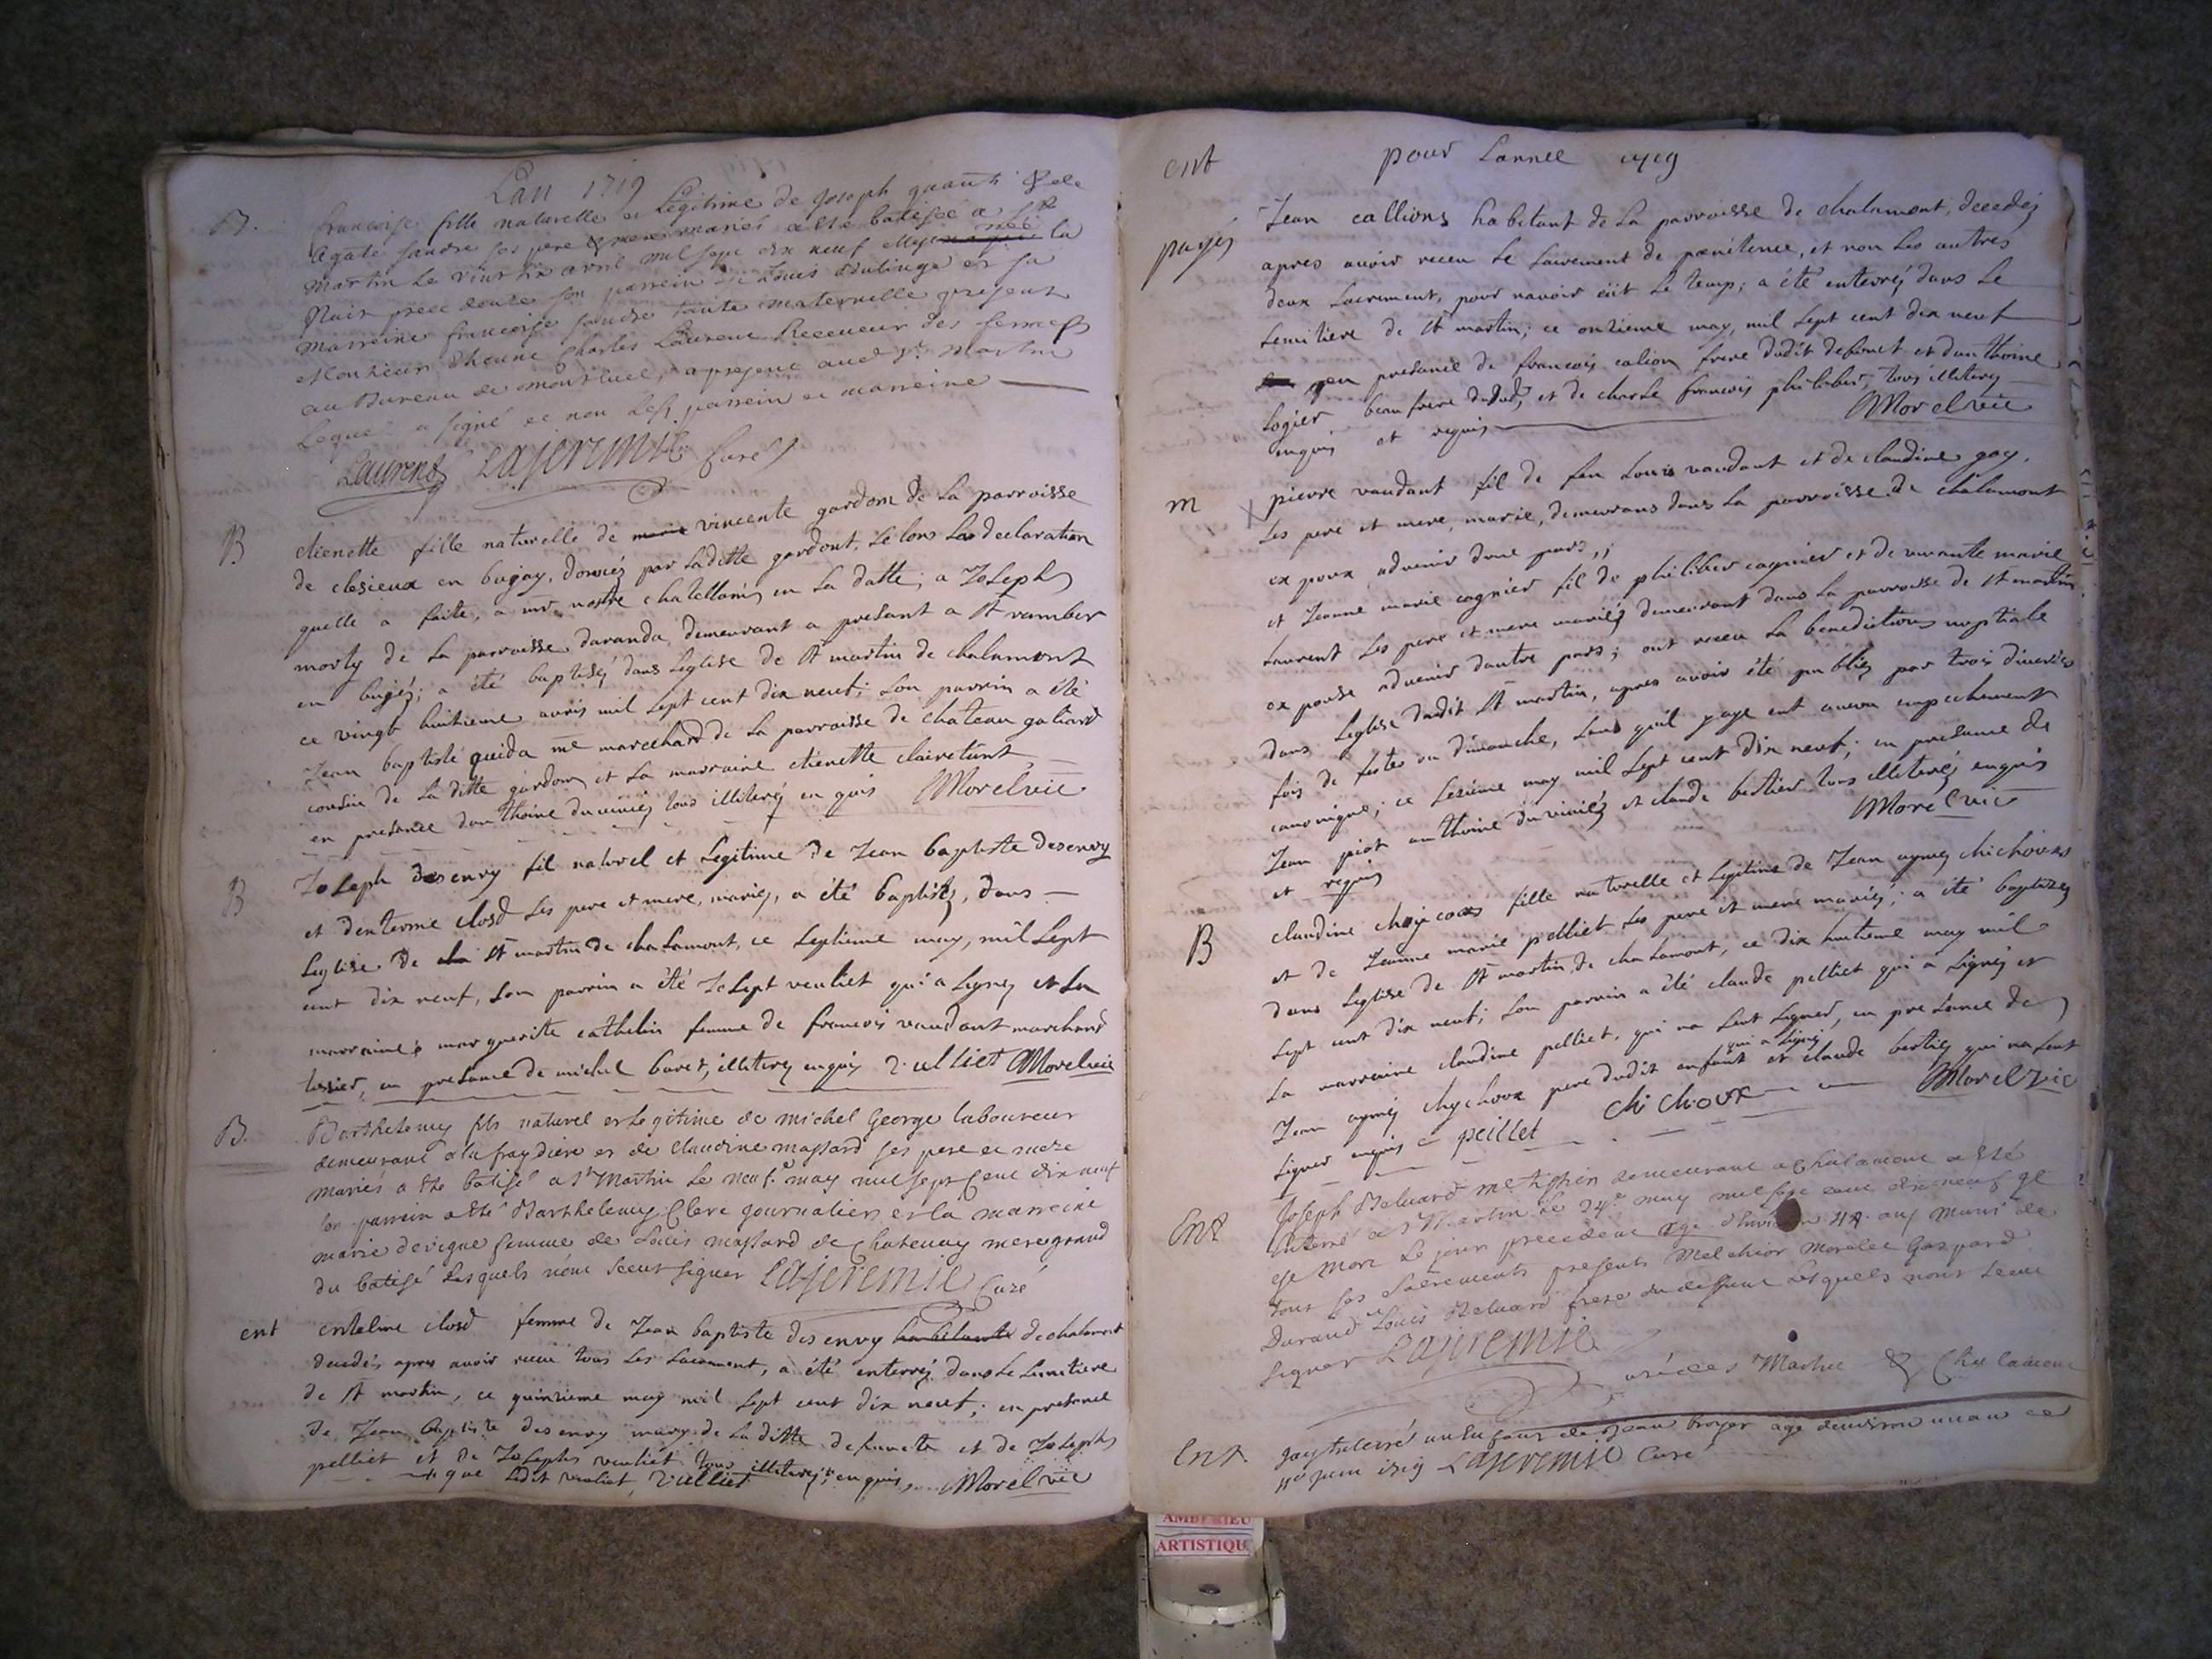 Lan 1719
B.
francoise fille naturelle et Legitime de Joseph & de
Agate sandre ses pere & mere mariés a été batisée a St
Martin Le vint six avril mil sept dix neuf née la
Nuit precedente son parrein Louis et sa
Marreine francoise sandre tante maternelle present
Monsieur Charles Laurent Receveur des fermes
au Bureau de Montluel, a present aud St Martin
Lequel a signé et non Les parrein et marreine
Laurent Lajeremie Curé
B
etienette fille naturelle de marie vincente gardon de La parroisse
de clesieux en bugay, donnéz par Laditte gardont, se lons La declaration
quelle a faite, a mr nostre chatellain, en La datte; a Joseph
morty de La parroisse daranda, demeurant a presant a St ramber
en bugéz; a été baptiséz dans Leglise de St martin de chalamont
ce vingt huitieme avris mil sept cent dix neuf; son parrein a été
Jean baptiste guida me marcchand de La parroisse de chateau galiard
cousin de La ditte gardon et La marraine etienette clairetant
en presance danthoine duviviez tous illiteréz en quis Morel vic
B
Joseph desenvy fil naturel et Legitime de Jean baptiste desenvy
et denterme closd ses pere et mere, mariez, a été baptiséz, dans
Leglise de cha St martin de chalamont, ce septieme may, mil sept
cent dix neuf, son parrin a été Josept veuliet qui a signez et sa
marraine marguerite cathelin femme de francois vaudant marchand
tessier, en presance de michel baret, illiterez enquis Vulliet Morel vic
B.
Barthelemy fils naturel et Legitime de michel George laboureur
demeurant a la fraydiere et de Claudine massard ses pere et mere
mariés a été batisé a St Martin Le neuf.e may mil sept cent dix neuf
son parrein a été Barthelemy Clerc journalier et la marreine
marie devigne femme de Louis massard de Chatenay mere grand
du batisé Lesquels n'ont sceut signer Lajeremie Curé
ent
entelme closd femme de Jean baptiste desenvy habitante de chalamont
decedés apres avoir receu tous Les sacrement, a été enterréz dans Le semitiere
de St martin, ce quinzieme may mil sept cent dix neuf; en presance
de Jean baptiste desenvy mary de La ditte defuncte et de Joseph
pelliet et de Josephs veuliet tous illiteréz enquis
que Ledit veuliet, Vulliet Morel vic
ent pour Lannee 1719
payés
Jean callions habitant de La parroisse de chalamont, decedéz
apres avoir receu Le sacrement de pœnitence, et non Les autres
deux sacrement, pour navoir eüt Le temp; a été enterréz dans Le
semitiere de St martin; ce onzieme may, mil sept cent dix neuf
en presance de francois calion frere dudit defunct et danthoine
Logier beau frere dudt, et de charle francois philibert, tous illiterez
enquis et requis Morel vic
m
pierre vaudant fil de feu Louis vaudant et de claudine gay,
ses pere et mere, marie, demeurans dans La parroisse de chalamont
ex poux advenir dune part,
et Jeanne marie cagnier fil de philiber cagnier et de vivante marie
Laurent ses pere et mere mariéz demeurant dans La parroisse de St martin,
ex pouse advenir dautre part; ont receu La benediction nuptiale
dans Leglise dudit St martin, apres avoir été publiez par trois diverses
fois de festes ou dimanche, sans quil y aye eut aucun empechement
canonique; ce sezieme may mil sept cent dix neuf; en presance de
Jean piot anthoine duviviéz et claude bertier tous illiteréz enquis
et requis Morel vic
B
claudine fille naturelle et Legitime de Jean aymez chichoux
et de Jeanne marie pelliet ses pere et mere mariéz; a été baptizez
dans Leglise de St martin, de chalamont, ce dix huitieme may mil
sept cent dix neuf; son parrein a été claude pelliet qui a signéz et
La marraine claudine pelliet, qui na seut signer, en presance de
qui a signez
Jean ayméz chychoux pere dudit enfant et claude bertiez qui na seut
signer enquis C peillet Chi Choux Morel vic
Ent
Joseph Beluard demeurant a Chalamont a été
Enterré a St Martin Le 24.e may mil sept cent dix neuf
est mort Le jour precedent age denviron ans Muni de
tous ses sacrements presents Melchior Gaspard
Durand Louis Beluard frere du deffunt Lesquels n'ont sceu
signer Lajeremie
Curé de St Martin & Chalamont
Ent.
Jay Enterré un Enfant de Jean broyer age denviron un an ce
juin 1719 Lajeremie Curé
AMBERIEU
ARTISTIQU